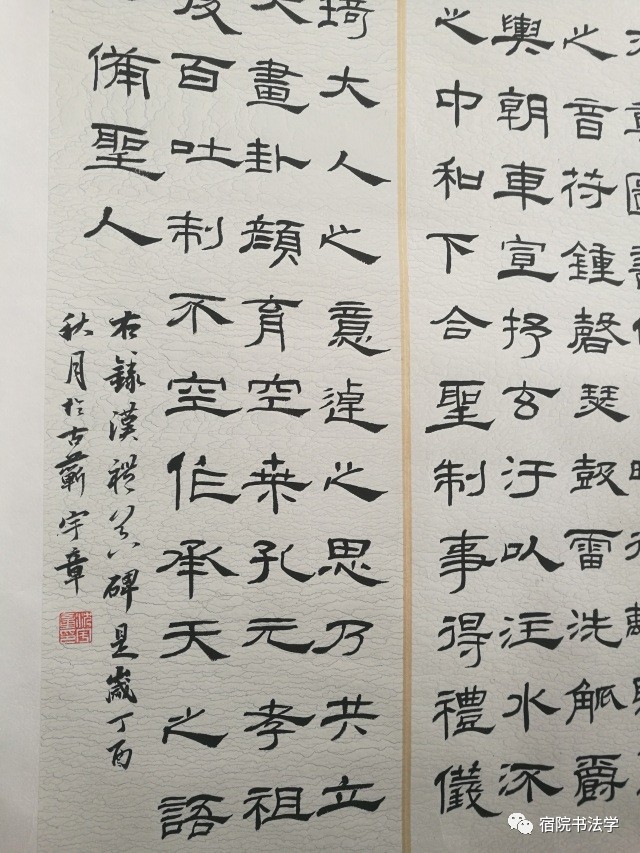 之音符鍾磬瑟鼓雷洗觚爵
輿朝車宣抒玄汙以注水流
之中和下合聖制事得禮儀
琦大人之意逴之思乃共立
天畫卦顏育空桑孔元孝祖
百吐制不空作承天之語
備聖人
右錄漢禮器碑是歲丁酉
秋月於古蘄宇章
宿院书法学